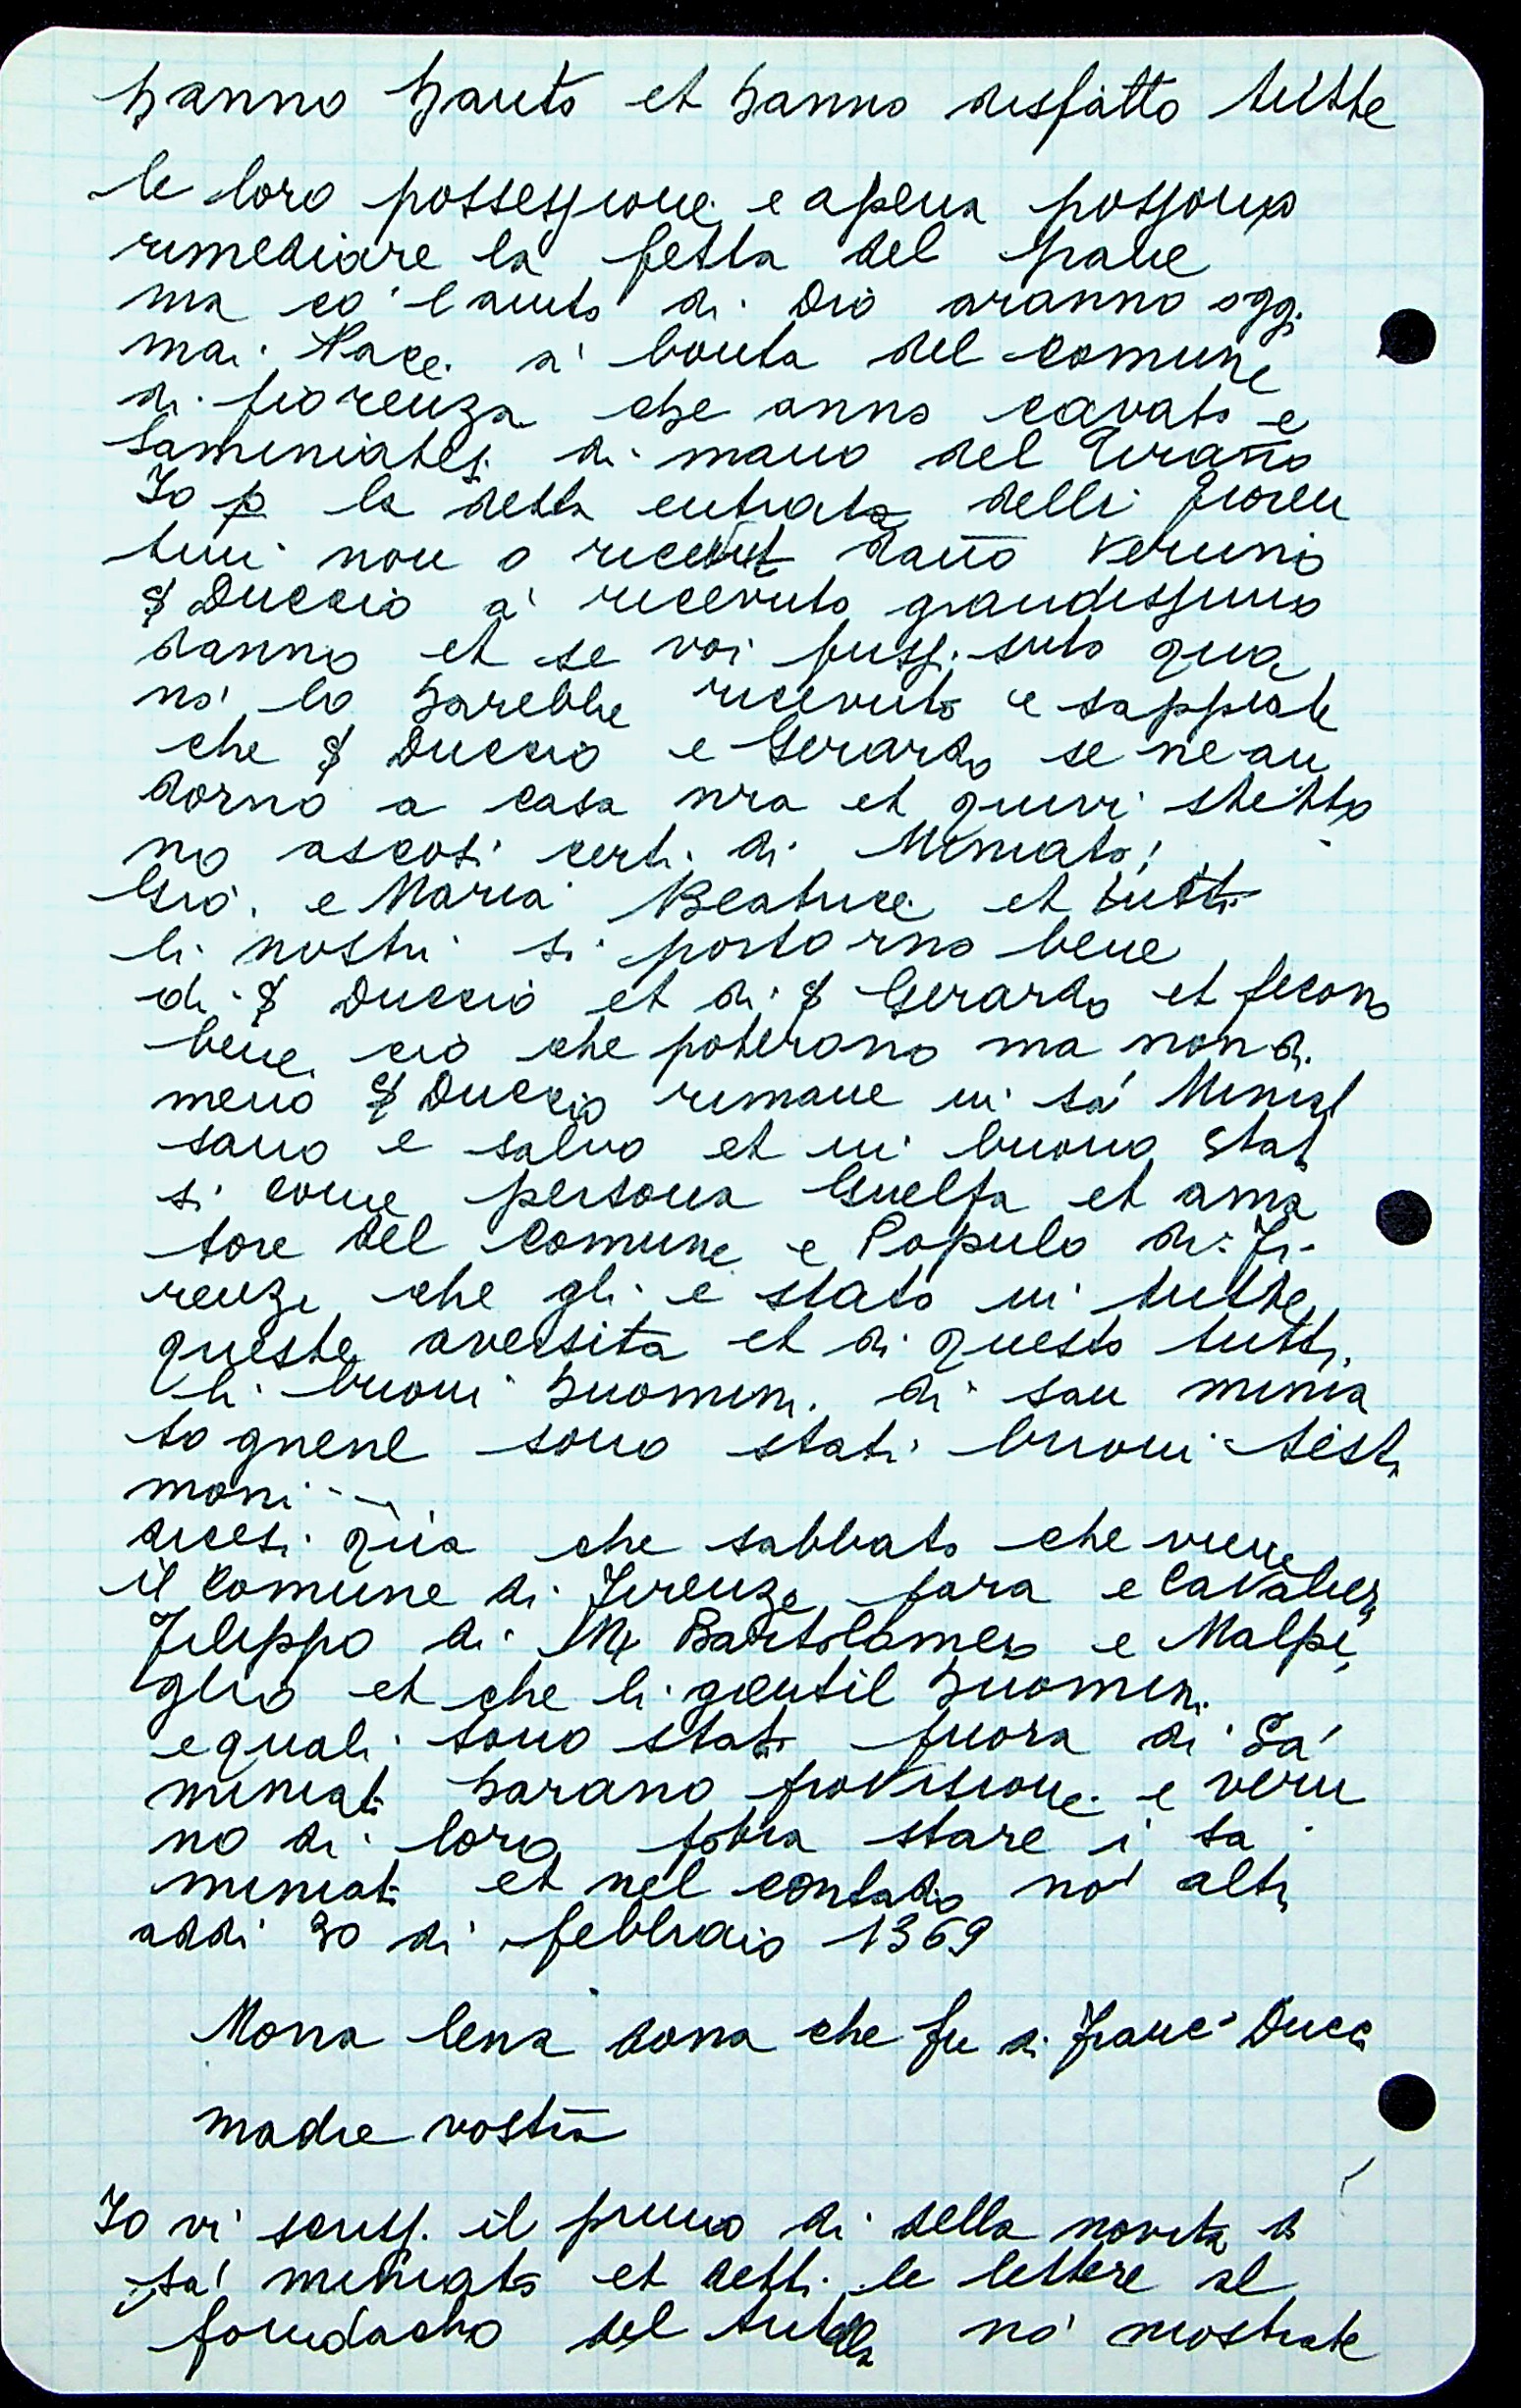 hanno hauto et hanno disfatto tutte
le loro possessione e apena possono
rimediare la fetta del pane
ma co' l aiuto di Dio aranno oggi
mai Pace a' bonta del comune
di fiorenza che anno cavato e
Saminiatesi di mano del Tirañо
Io p la detta entrata delli fioren
tini non o ricevut dano veruno
S Duccio a' ricevuto grandissimo
danno et se voi fussi suto qua
no' lo harebbe ricevuto e sappiate
che S Duccio e Gerardo se ne an
dorno a casa nra et quivi stetto
no ascosi certi di Miniato
Gio. e Maria Beatrice et tutti
li nostri si portorno bene
di S Duccio et di S Gerardo et fecono
bene cio che poterono ma non di
meno S Duccio rimane in sa' Miniat
sano e salvo et in buono stat
si come persona Guelfa et ama
tore del Comune e Populo di Fi-
renze che gli e stato in tutte
queste aversita et di questo tutti
li buoni huomini di san minia
to gnene sono stati buoni testi
moni
dicesi qua che sabbato che viene
il Comune di Firenze fara e Cavalieri
Filippo di Mr Bartolameo e Malpi
glio et che li gentil huomini
e quali sono stati fuora di Sa'
miniati harano provisione e veru
no di loro potra stare i sa
miniati et nel contado no' altri
addi 30 di febbraio 1369
Mona lena dona che fu di Franc° Ducci
madre vostra
Io vi scrissi il primo di della novita di
sa' miniato et detti le lettere al
fondacho del no' mostrate